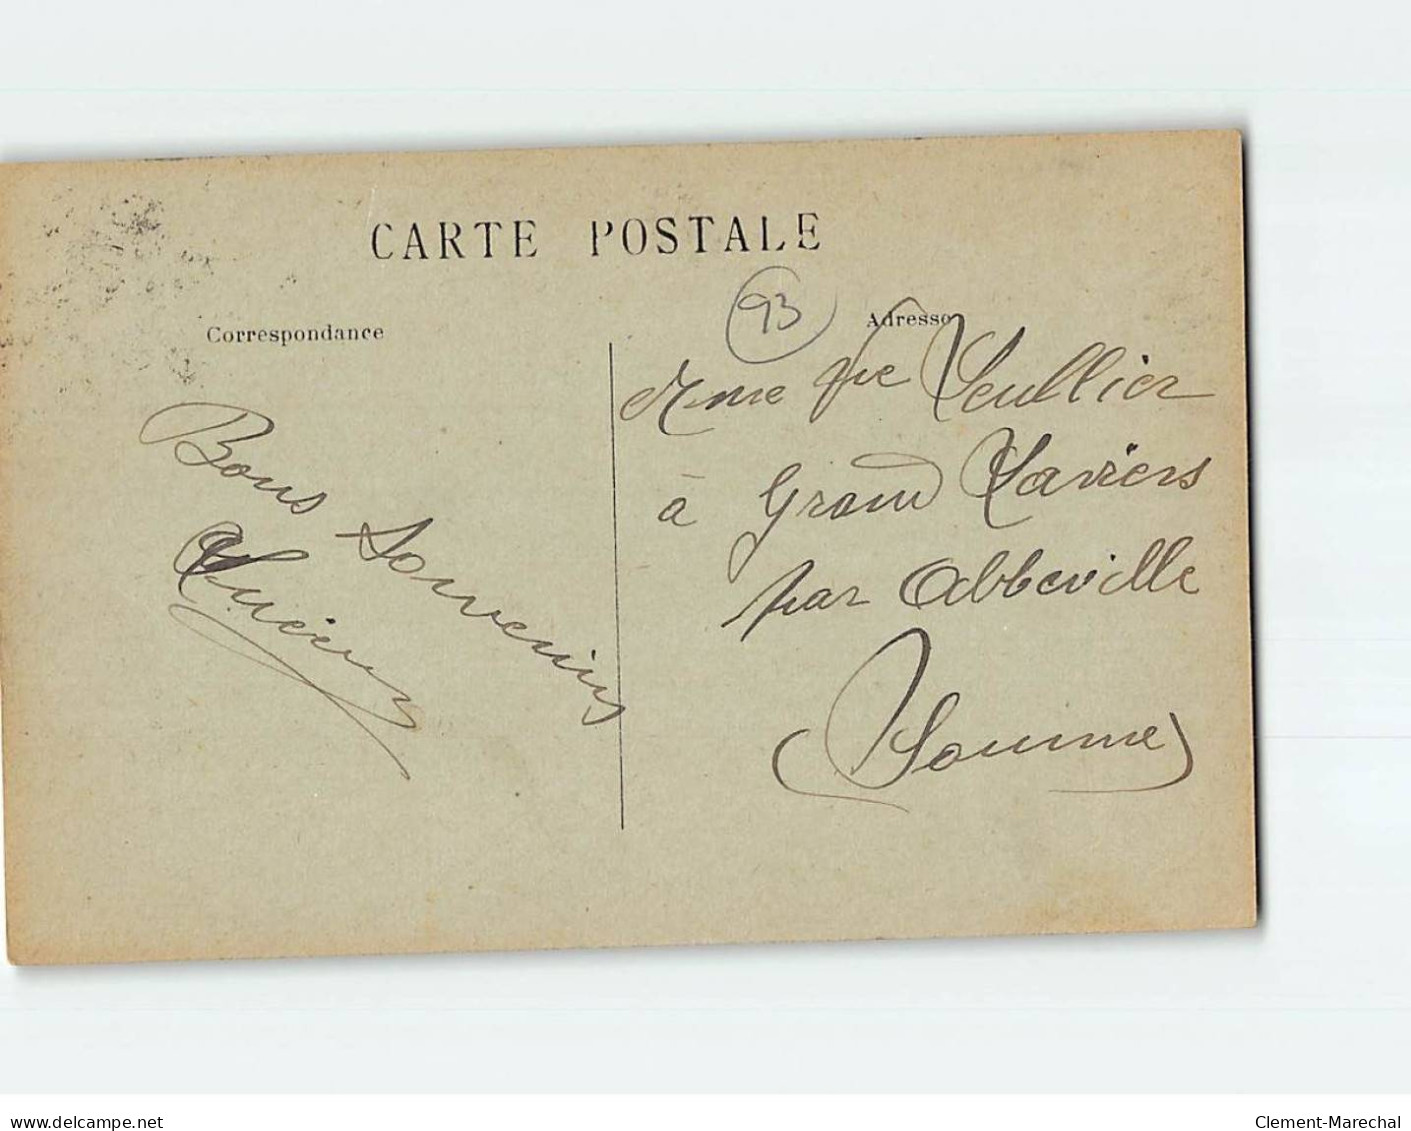 CARTE POSTALE
Correspondance
Adresse
93
Bons Souvenirs
Lucien
Mme Vve Leullier
à Grand Laviers
par Abbeville
(Somme)
delcampe.net
Clement-Marechal